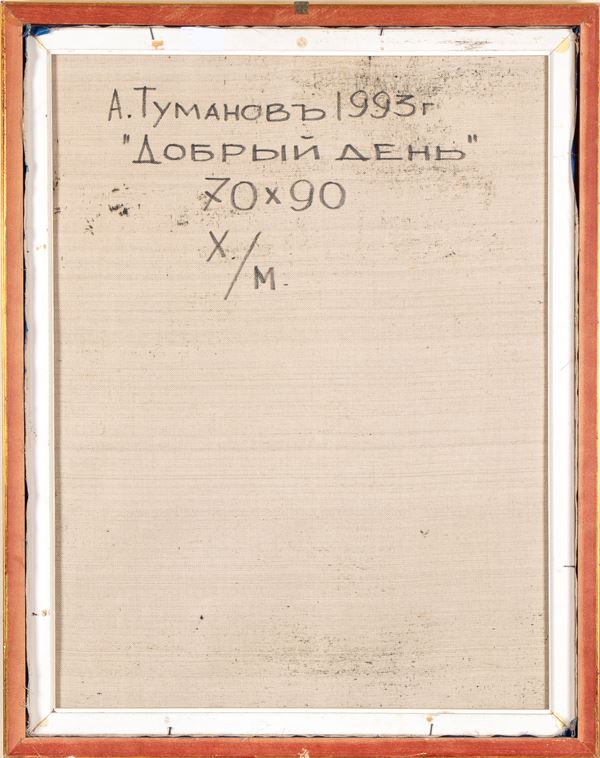 А. Тумановъ 1993г
"Добрый день"
70х90
Х/м.